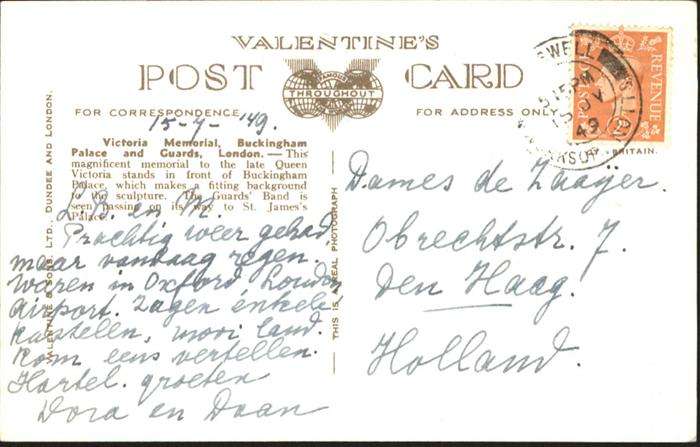 VALENTINE'S
POST CARD
FAMOUS
THROUGHOUT
THE WORLD
FOR CORRESPONDENCE
FOR ADDRESS ONLY
15-7-'49.
Victoria Memorial, Buckingham
Palace and Guards, London. — This
magnificent memorial to the late Queen
Victoria stands in front of Buckingham
Palace, which makes a fitting background
to the sculpture. The Guards' Band is
seen passing on its way to St. James's
Palace.
L.B. en M.
Prachtig weer gehad
maar vandaag regen.
Waren in Oxford, London
Airport. Zagen enkele
kastelen, mooi land.
Kom eens vertellen.
Hartel. groeten
Dora en Daan
VALENTINE & SONS, LTD., DUNDEE AND LONDON.
THIS IS A REAL PHOTOGRAPH
Dames de Zaaijer.
Obrechtstr. 7.
Den Haag.
Holland.
REVENUE
WELL
PM
49
WORKSOP
BRITAIN.